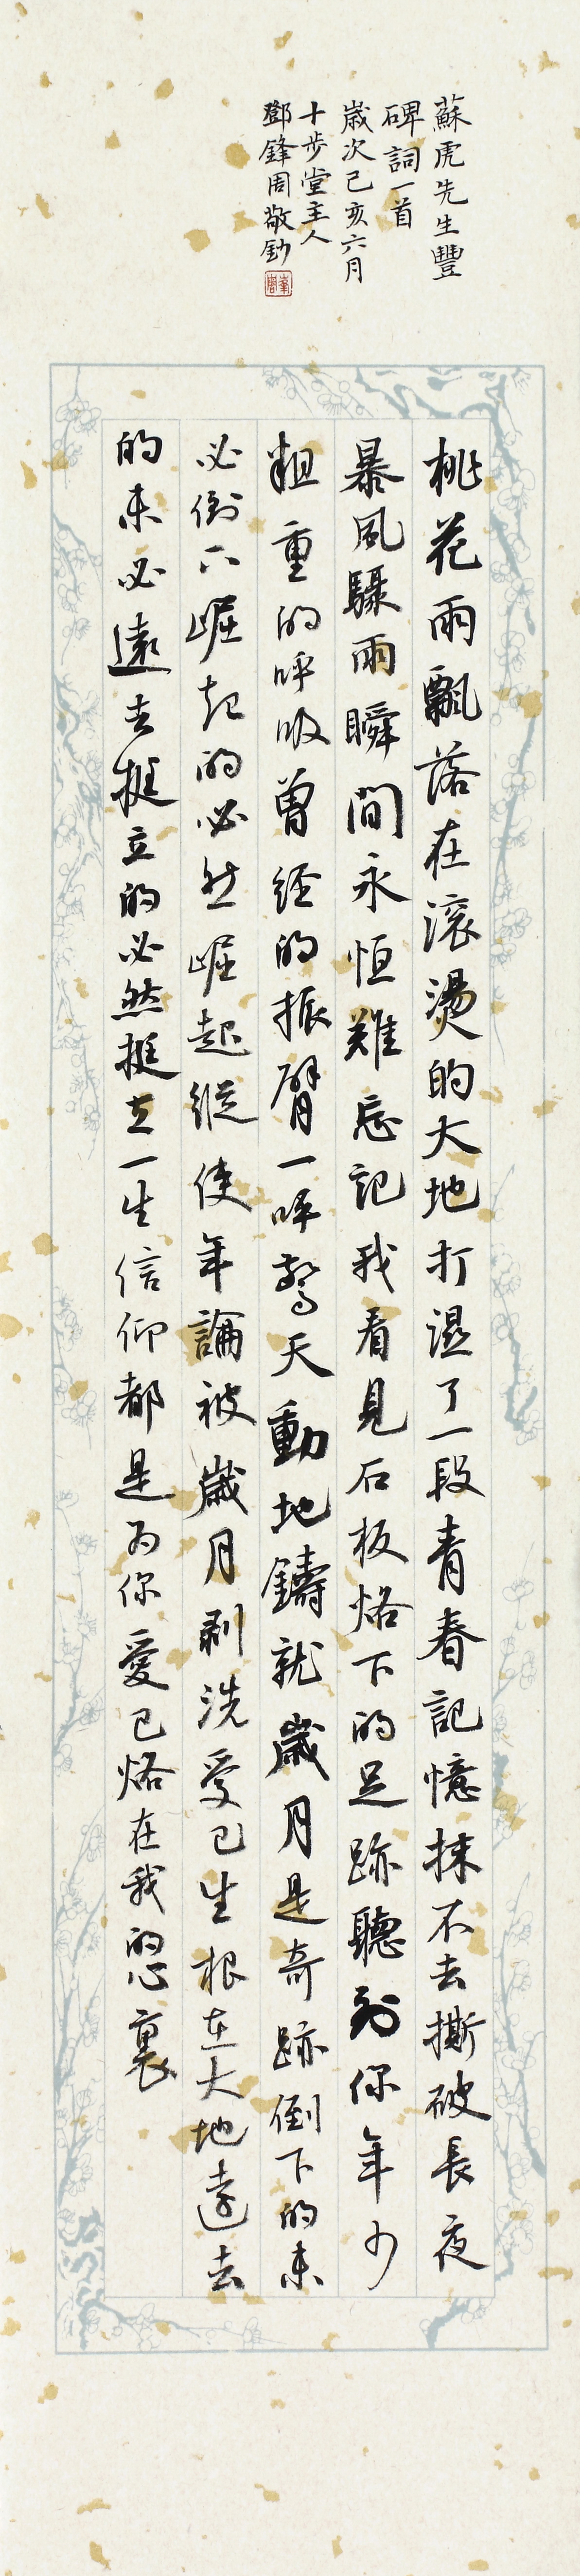 蘇虎先生豐
碑詞一首
歲次己亥六月
十步堂主人
鄧鋒周敬鈔
桃花雨飄落在滾燙的大地打濕了一段青春記憶抹不去撕破長夜
暴風驟雨瞬間永恒難忘記我看見石板烙下的足跡聽到你年少
粗重的呼吸曾經的振臂一呼驚天動地鑄就歲月是奇跡倒下的未
必倒下崛起的必然崛起縱使年論被歲月剥洗愛已生根在大地遠去
的未必遠去挺立的必然挺立一生信仰都是為你愛已烙在我的心裏